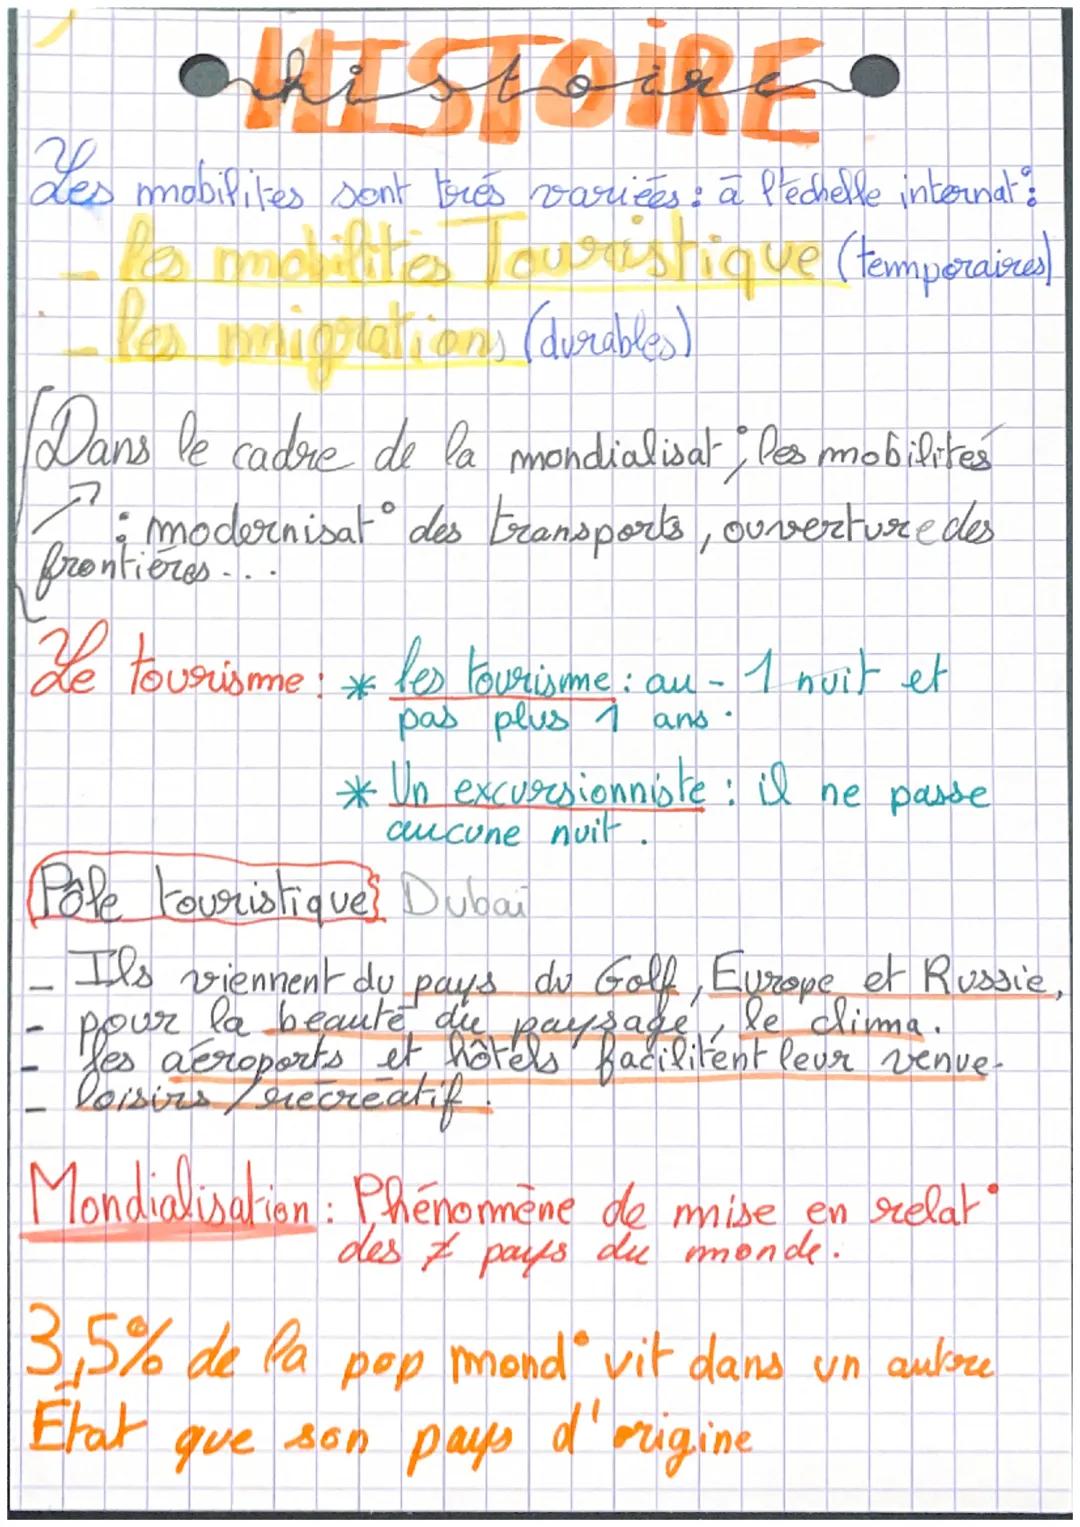 HISTOIRE
histoire
Les mobilites sont trés variées : à l'échelle internat° :
- les mobilités Touristique (temporaires)
- les migrations (durables)
Dans le cadre de la mondialisat°, les mobilités
↗ : modernisat° des transports, ouverture des
frontières...
Le tourisme : * les tourisme : au - 1 nuit et
pas plus 1 ans.
* Un excursionniste : il ne passe
aucune nuit.
Pôle touristique Dubaï
- Ils viennent du pays du Golf, Europe et Russie,
- pour la beauté du paysage, le clima.
- les aéroports et hôtels facilitent leur venue.
- loisirs / récréatif.
Mondialisation : Phénomène de mise en relat°
des ≠ pays du monde.
3,5% de la pop mond° vit dans un autre
État que son pays d'origine